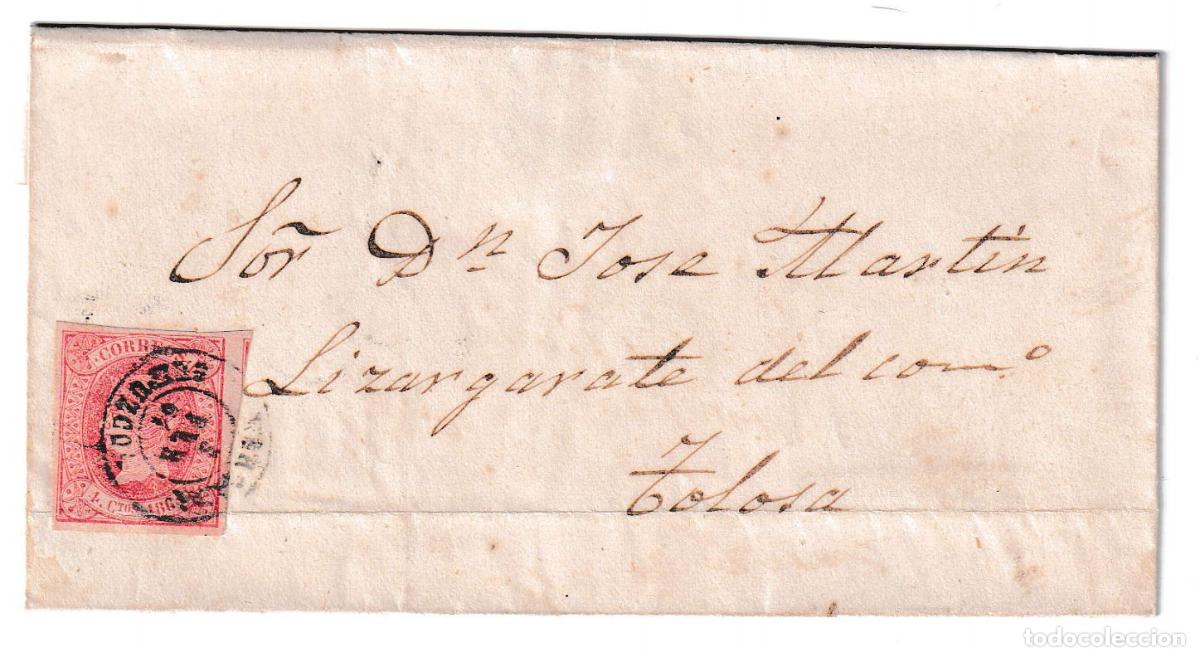 Sor̃ Dn Jose Martin
Lizargarate del como
Tolosa
CORREOS
4 Ctos 1864
todocoleccion